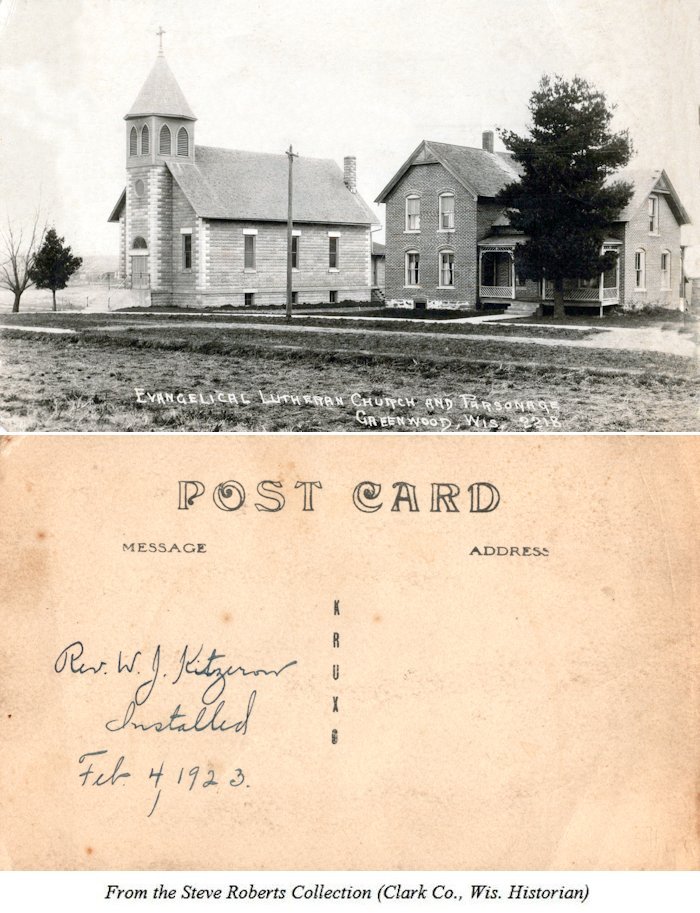 Evangelical Lutheran Church and Parsonage
Greenwood, Wis. 2218
POST CARD
MESSAGE
ADDRESS
KRUXO
Rev. W. J. Kitzerow
Installed
Feb. 4, 1923.
From the Steve Roberts Collection (Clark Co., Wis. Historian)